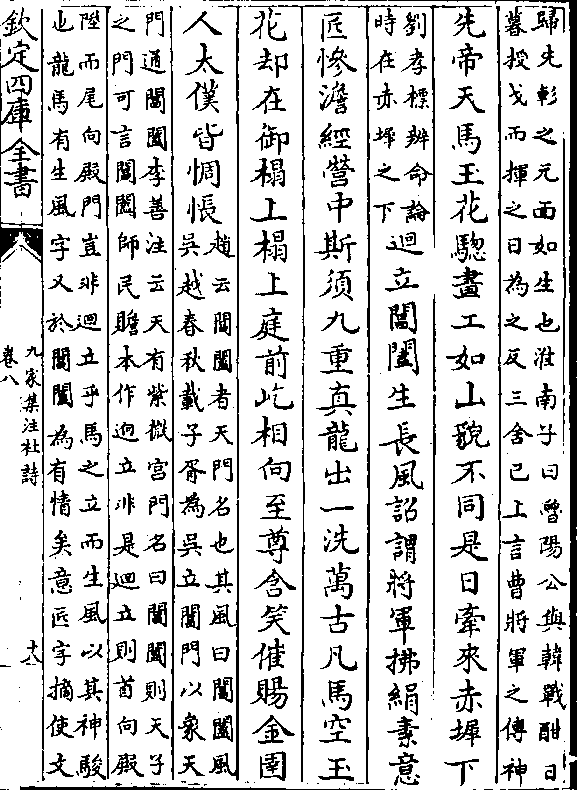 歸先軫之元面如生也淮南子曰魯陽公與韓戰酣日
暮授戈而揮之日為之反三舍已上言曹將軍之傳神
先帝天馬玉花驄畫工如山貌不同是日牽來赤墀下
劉孝標辨命論
時在赤墀之下
迴立閶闔生長風詔謂將軍拂絹素意
匠慘澹經營中斯須九重真龍出一洗萬古凡馬空玉
花却在御榻上榻上庭前屹相向至尊含笑催賜金圉
人太僕皆惆悵
趙云閶闔者天門名也其風曰閶闔風
吳越春秋載子胥為吳立閶門以象天
門通閶闔李善注云天有紫微宮門名曰閶闔則天子
之門可言閶闔師民瞻本作迥立非是迴立則首向殿
陛而尾向殿門豈非迴立乎馬之立而生風以其神駿
也龍馬有生風字又於閶闔為有情矣意匠字摘使文
欽定四庫全書
九家集注杜詩
卷八
十八